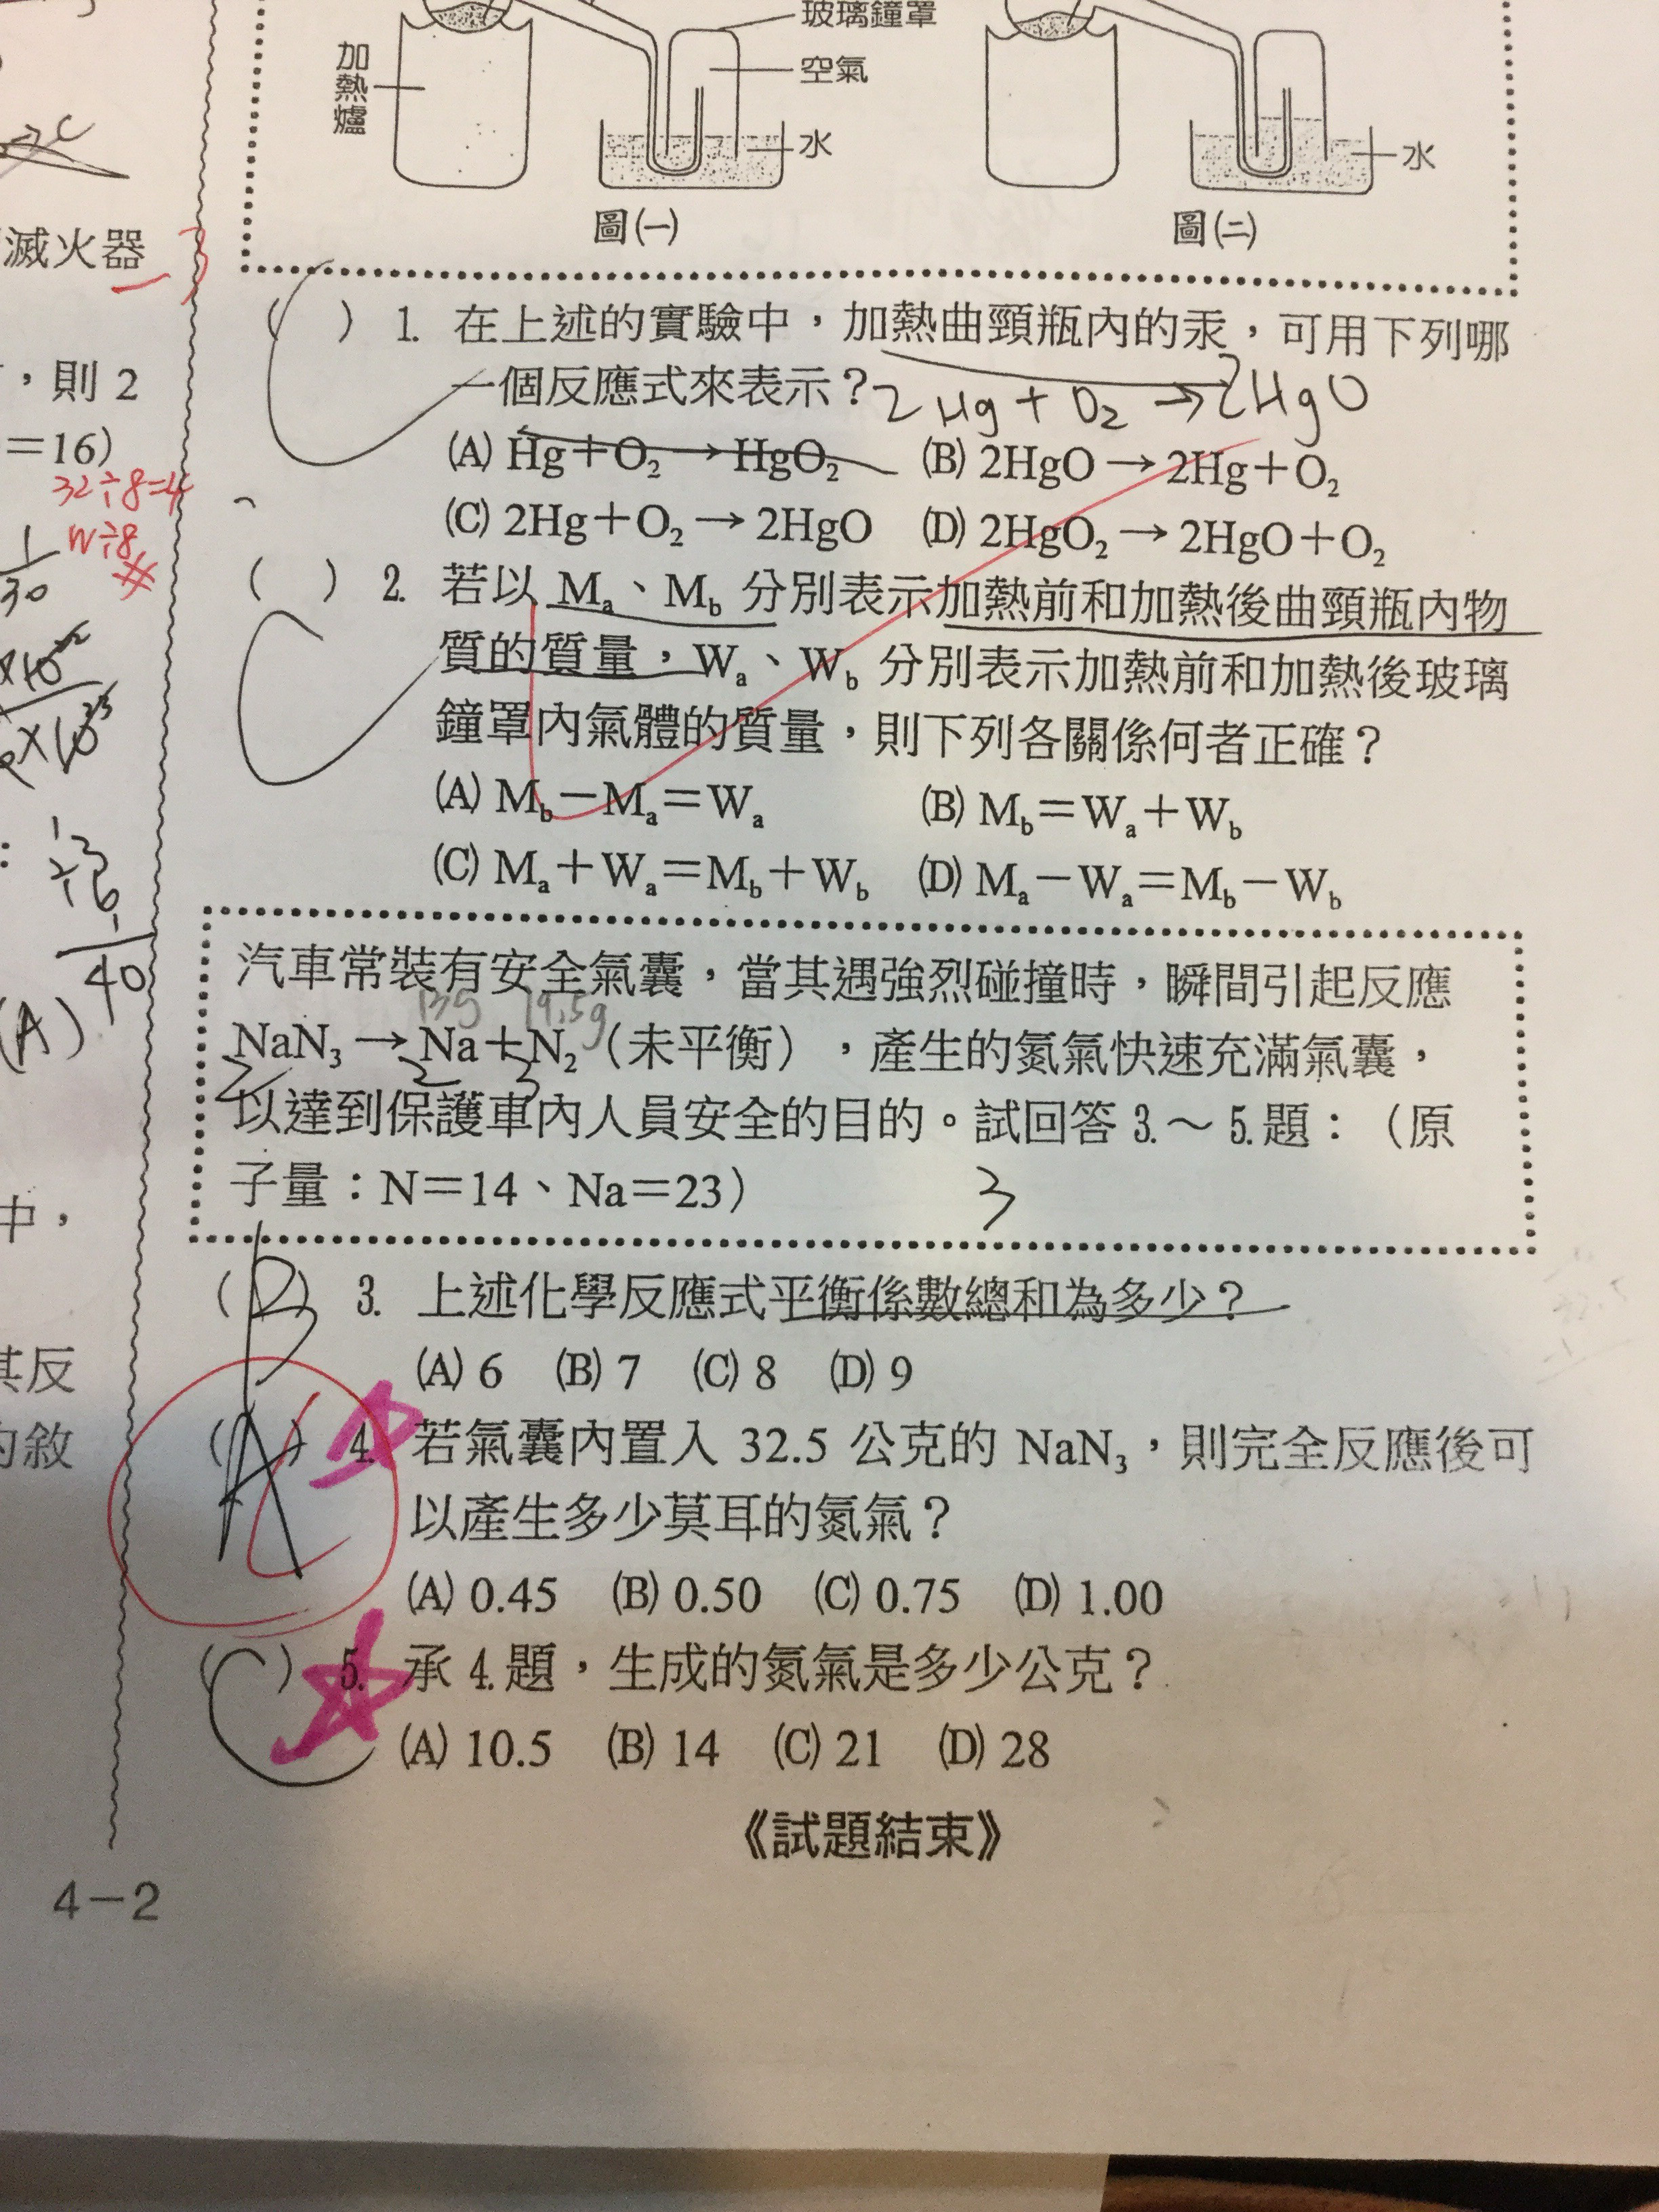 玻璃鐘罩
加熱爐
空氣
水
水
圖(一)
圖(二)
→C
滅火器
，則 2
=16)
32÷8=4
W÷8
1
30
(A)
40
中，
其反
的敘
( ) 1. 在上述的實驗中，加熱曲頸瓶內的汞，可用下列哪
一個反應式來表示？2Hg+O₂→2HgO
(A) Hg+O₂→HgO₂ (B) 2HgO→2Hg+O₂
(C) 2Hg+O₂→2HgO (D) 2HgO₂→2HgO+O₂
C
( ) 2. 若以 Mₐ、M_b 分別表示加熱前和加熱後曲頸瓶內物
質的質量，Wₐ、W_b 分別表示加熱前和加熱後玻璃
鐘罩內氣體的質量，則下列各關係何者正確？
(A) M_b－Mₐ=Wₐ (B) M_b=Wₐ+W_b
(C) Mₐ+Wₐ=M_b+W_b (D) Mₐ－Wₐ=M_b－W_b
C
汽車常裝有安全氣囊，當其遇強烈碰撞時，瞬間引起反應
13g 19.5g
NaN₃→Na+N₂（未平衡），產生的氮氣快速充滿氣囊，
2 2 3
以達到保護車內人員安全的目的。試回答 3.～ 5.題：（原
子量：N=14、Na=23）
3
(B) 3. 上述化學反應式平衡係數總和為多少？
(A) 6 (B) 7 (C) 8 (D) 9
(A) 4. 若氣囊內置入 32.5 公克的 NaN₃，則完全反應後可
C
以產生多少莫耳的氮氣？
(A) 0.45 (B) 0.50 (C) 0.75 (D) 1.00
(C) 5. 承 4.題，生成的氮氣是多少公克？
(A) 10.5 (B) 14 (C) 21 (D) 28
《試題結束》
4－2